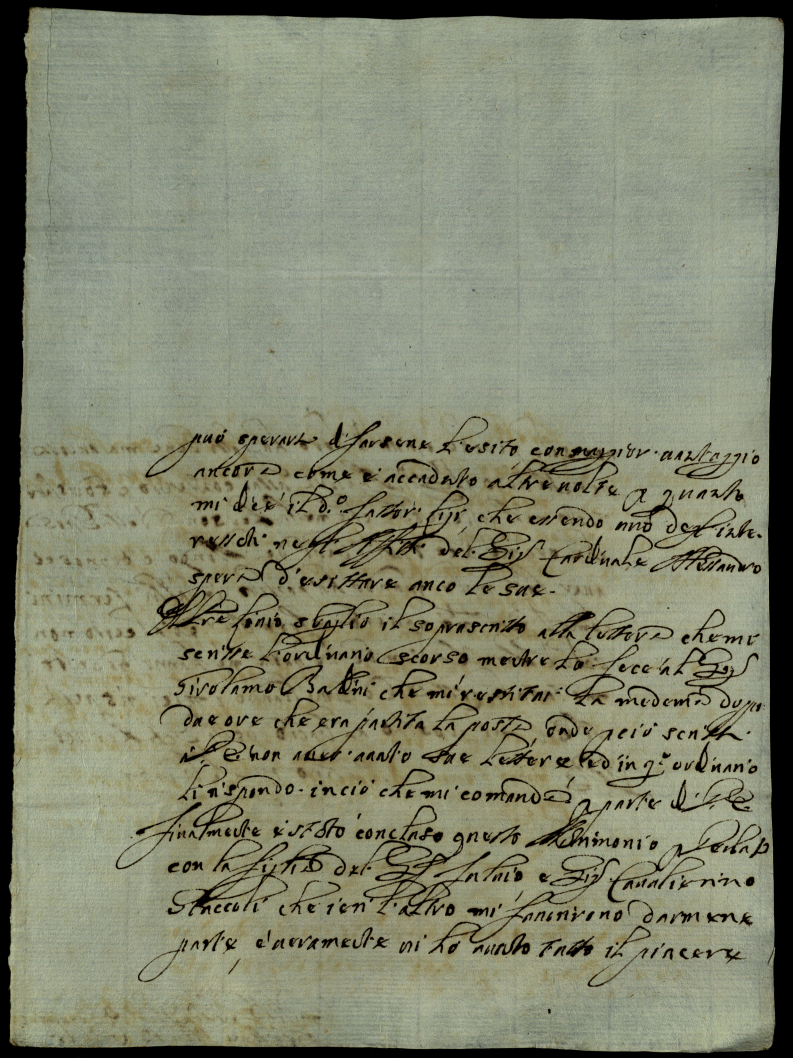 può sperare di farsene l'esito con maggior vantaggio
ancora come è accaduto altre volte p quanto
mi dice il d.º fattor che essendo uno de gl'inte-
ressati negl' del Sig.r Cardinale Alessandro
spera d'esittare anco le sue.
sbaglio il soprascritto alla lettera che me
scrisse l'ordinario scorso mentre lo fece al Sig.r
Girolamo Baldini che mi restituì la medema doppo
due ore che era partita la posta, onde perciò scrissi
non aver auuto sue lettere ed in q.º ordinario
li rispondo in ciò che mi comanda p parte di
finalmente è stato concluso questo Matrimonio
con la figlia del Sig.r Fuluio e Sig.r Caualierino
Staccoli che ieri l'altro mi fauorirono darmene
parte, e ueramente ui hò auuto tutto il piacere